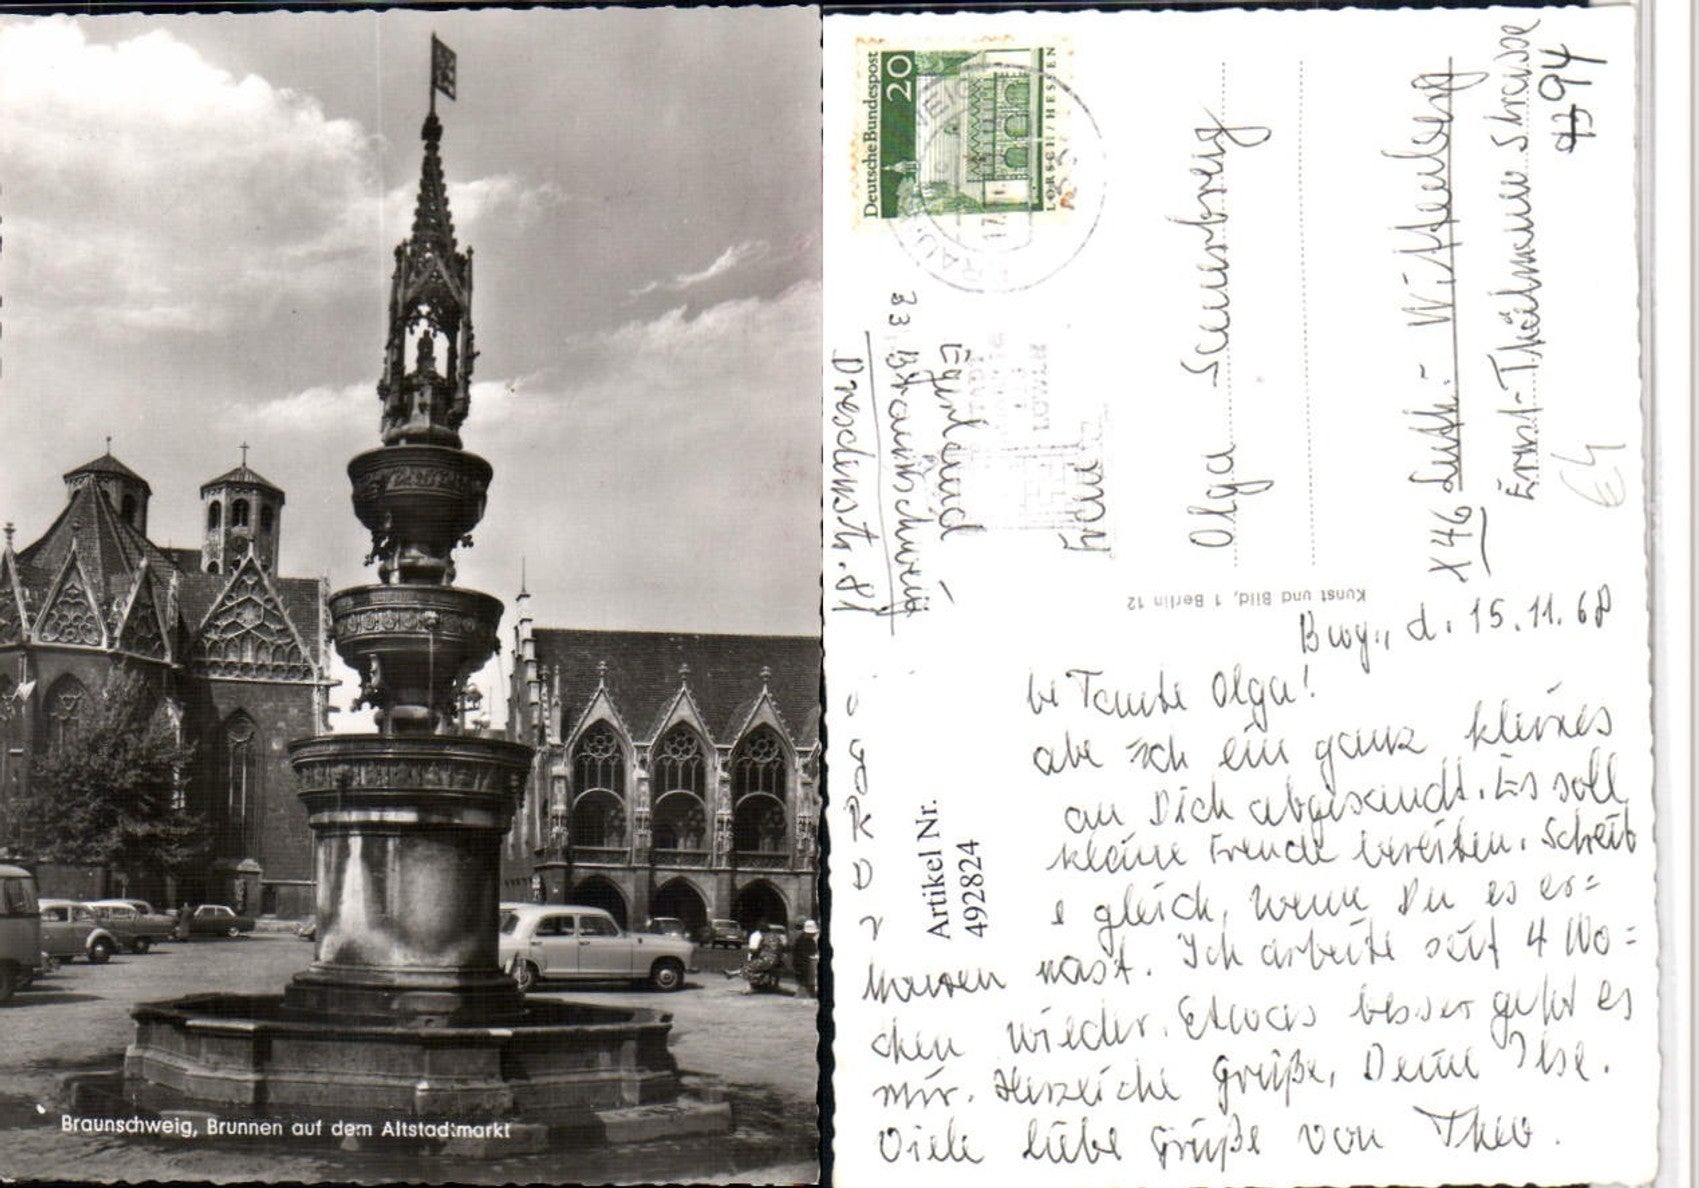 Braunschweig, Brunnen auf dem Altstadtmarkt
Deutsche Bundespost
20
LORSCH / HESSEN
33 Braunschweig
Dresdenstr. 81
Frau
Olga
X 46 Luth.- Wittenberg
Ernst-Thälmann Strasse
94
£4
Kunst und Bild, 1 Berlin 12
Artikel Nr.
492824
Bwg., d. 15.11.68
be Tante Olga!
abe ich ein ganz kleines
an Dich abgesandt. Es soll
kleine Freude bereiten. Schreib
gleich, wenn Du es er=
hast. Ich arbeite seit 4 Wo=
chen wieder. Etwas besser geht es
mir. Herzliche Grüße, Deine Ilse.
Viele liebe Grüße von Theo.